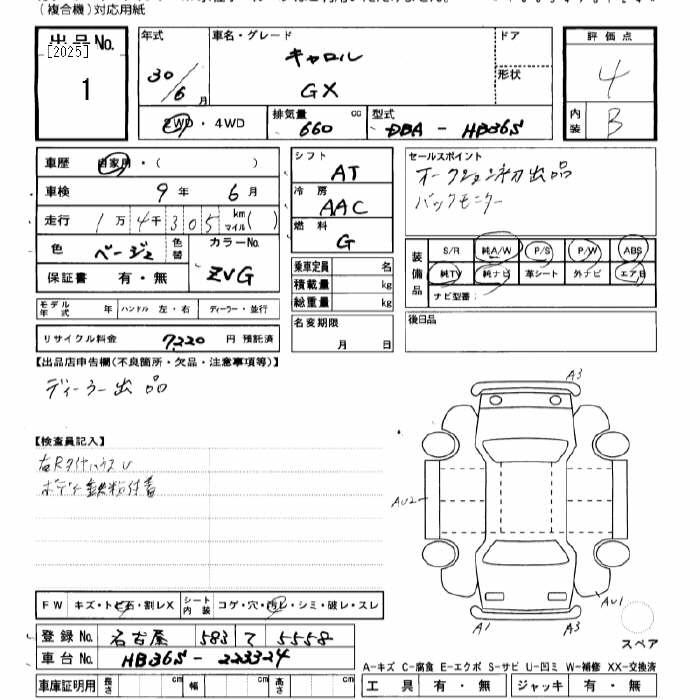 (複合機)対応用紙
出品No.
[2025]
1
年式
30/6月
車名・グレード
キャロル
GX
ドア
形状
評価点
4
内装
B
2WD・4WD
排気量
660 cc
型式
DBA - HB36S
車歴 自家用・( )
車検 9年 6月
走行 1万4千305 km マイル( )
色 ベージュ 色替
カラーNo.
ZVG
保証書 有・無
シフト
AT
冷房
AAC
燃料
G
セールスポイント
オークション初出品
バックモニター
装備品
S/R 純A/W P/S P/W ABS
純TV 純ナビ 革シート 外ナビ エアB
ナビ型番:
乗車定員 名
積載量 kg
総重量 kg
モデル年式 年 ハンドル 左・右 ディーラー・並行
リサイクル料金 7,220 円 預託済
名変期限
月 日
後日品
【出品店申告欄(不良箇所・欠品・注意事項等)】
ディーラー出品
【検査員記入】
ボディ鉄粉付着
A3
AU2
AU1
A1
A3
スペア
FW キズ・トビ石・割レX シート内装 コゲ・穴・汚レ・シミ・破レ・スレ
登録No. 名古屋 583 て 5558
車台No. HB36S - 223324
A-キズ C-腐食 E-エクボ S-サビ U-凹ミ W-補修 XX-交換済
車庫証明用 長さ cm 幅 cm 高さ cm
工具 有・無 ジャッキ 有・無